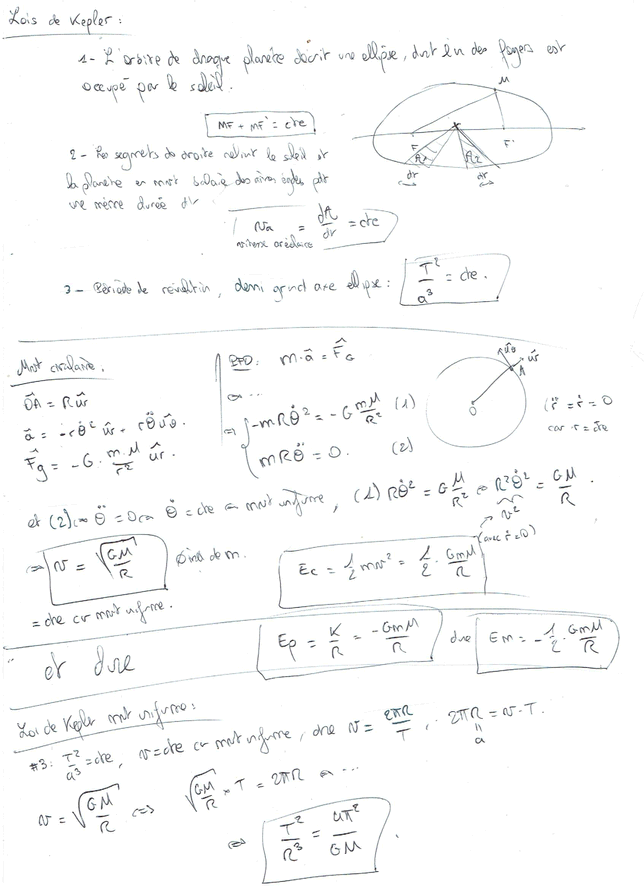 Lois de Kepler :
1- L'orbite de chaque planète décrit une ellipse, dont l'un des foyers est
occupé par le soleil.
MF + MF' = cte
M
F
F'
A1
A2
dt
dt
2 - Les segments de droite reliant le soleil et
la planète en mvt balaie des aires égales pdt
une même durée dt
Va = dA/dt = cte
vitesse aréolaire
3 - Période de révolution, demi grand axe ellipse : T²/a³ = cte.
Mvt circulaire.
OA = R ur
a = -rθ̇² ur + rθ̈ uθ
Fg = -G · m·M/r² ur
PFD : m·a = FG
⇔ ...
⇒ { -mRθ̇² = -G mM/R² (1)
mRθ̈ = 0. (2)
uθ
ur
A
O
(r̈ = ṙ = 0
car r = cte
et (2) ⇔ θ̈ = 0 ⇔ θ̇ = cte ⇔ mvt uniforme, (1) Rθ̇² = G M/R² ⇔ R²θ̇² = GM/R .
v²
(avec ṙ = 0)
⇒ v = √(GM/R)
de m.
Ec = 1/2 mv² = 1/2 · GmM/R
= cte car mvt uniforme.
et donc
Ep = K/R = -GmM/R
donc
Em = -1/2 · GmM/R
Loi de Kepler mvt uniforme :
#3 : T²/a³ = cte, v = cte car mvt uniforme, donc v = 2πR/T , 2πR = v·T.
a
v = √(GM/R) ⇔ √(GM/R) × T = 2πR ⇔ ...
⇔ T²/R³ = 4π²/GM .